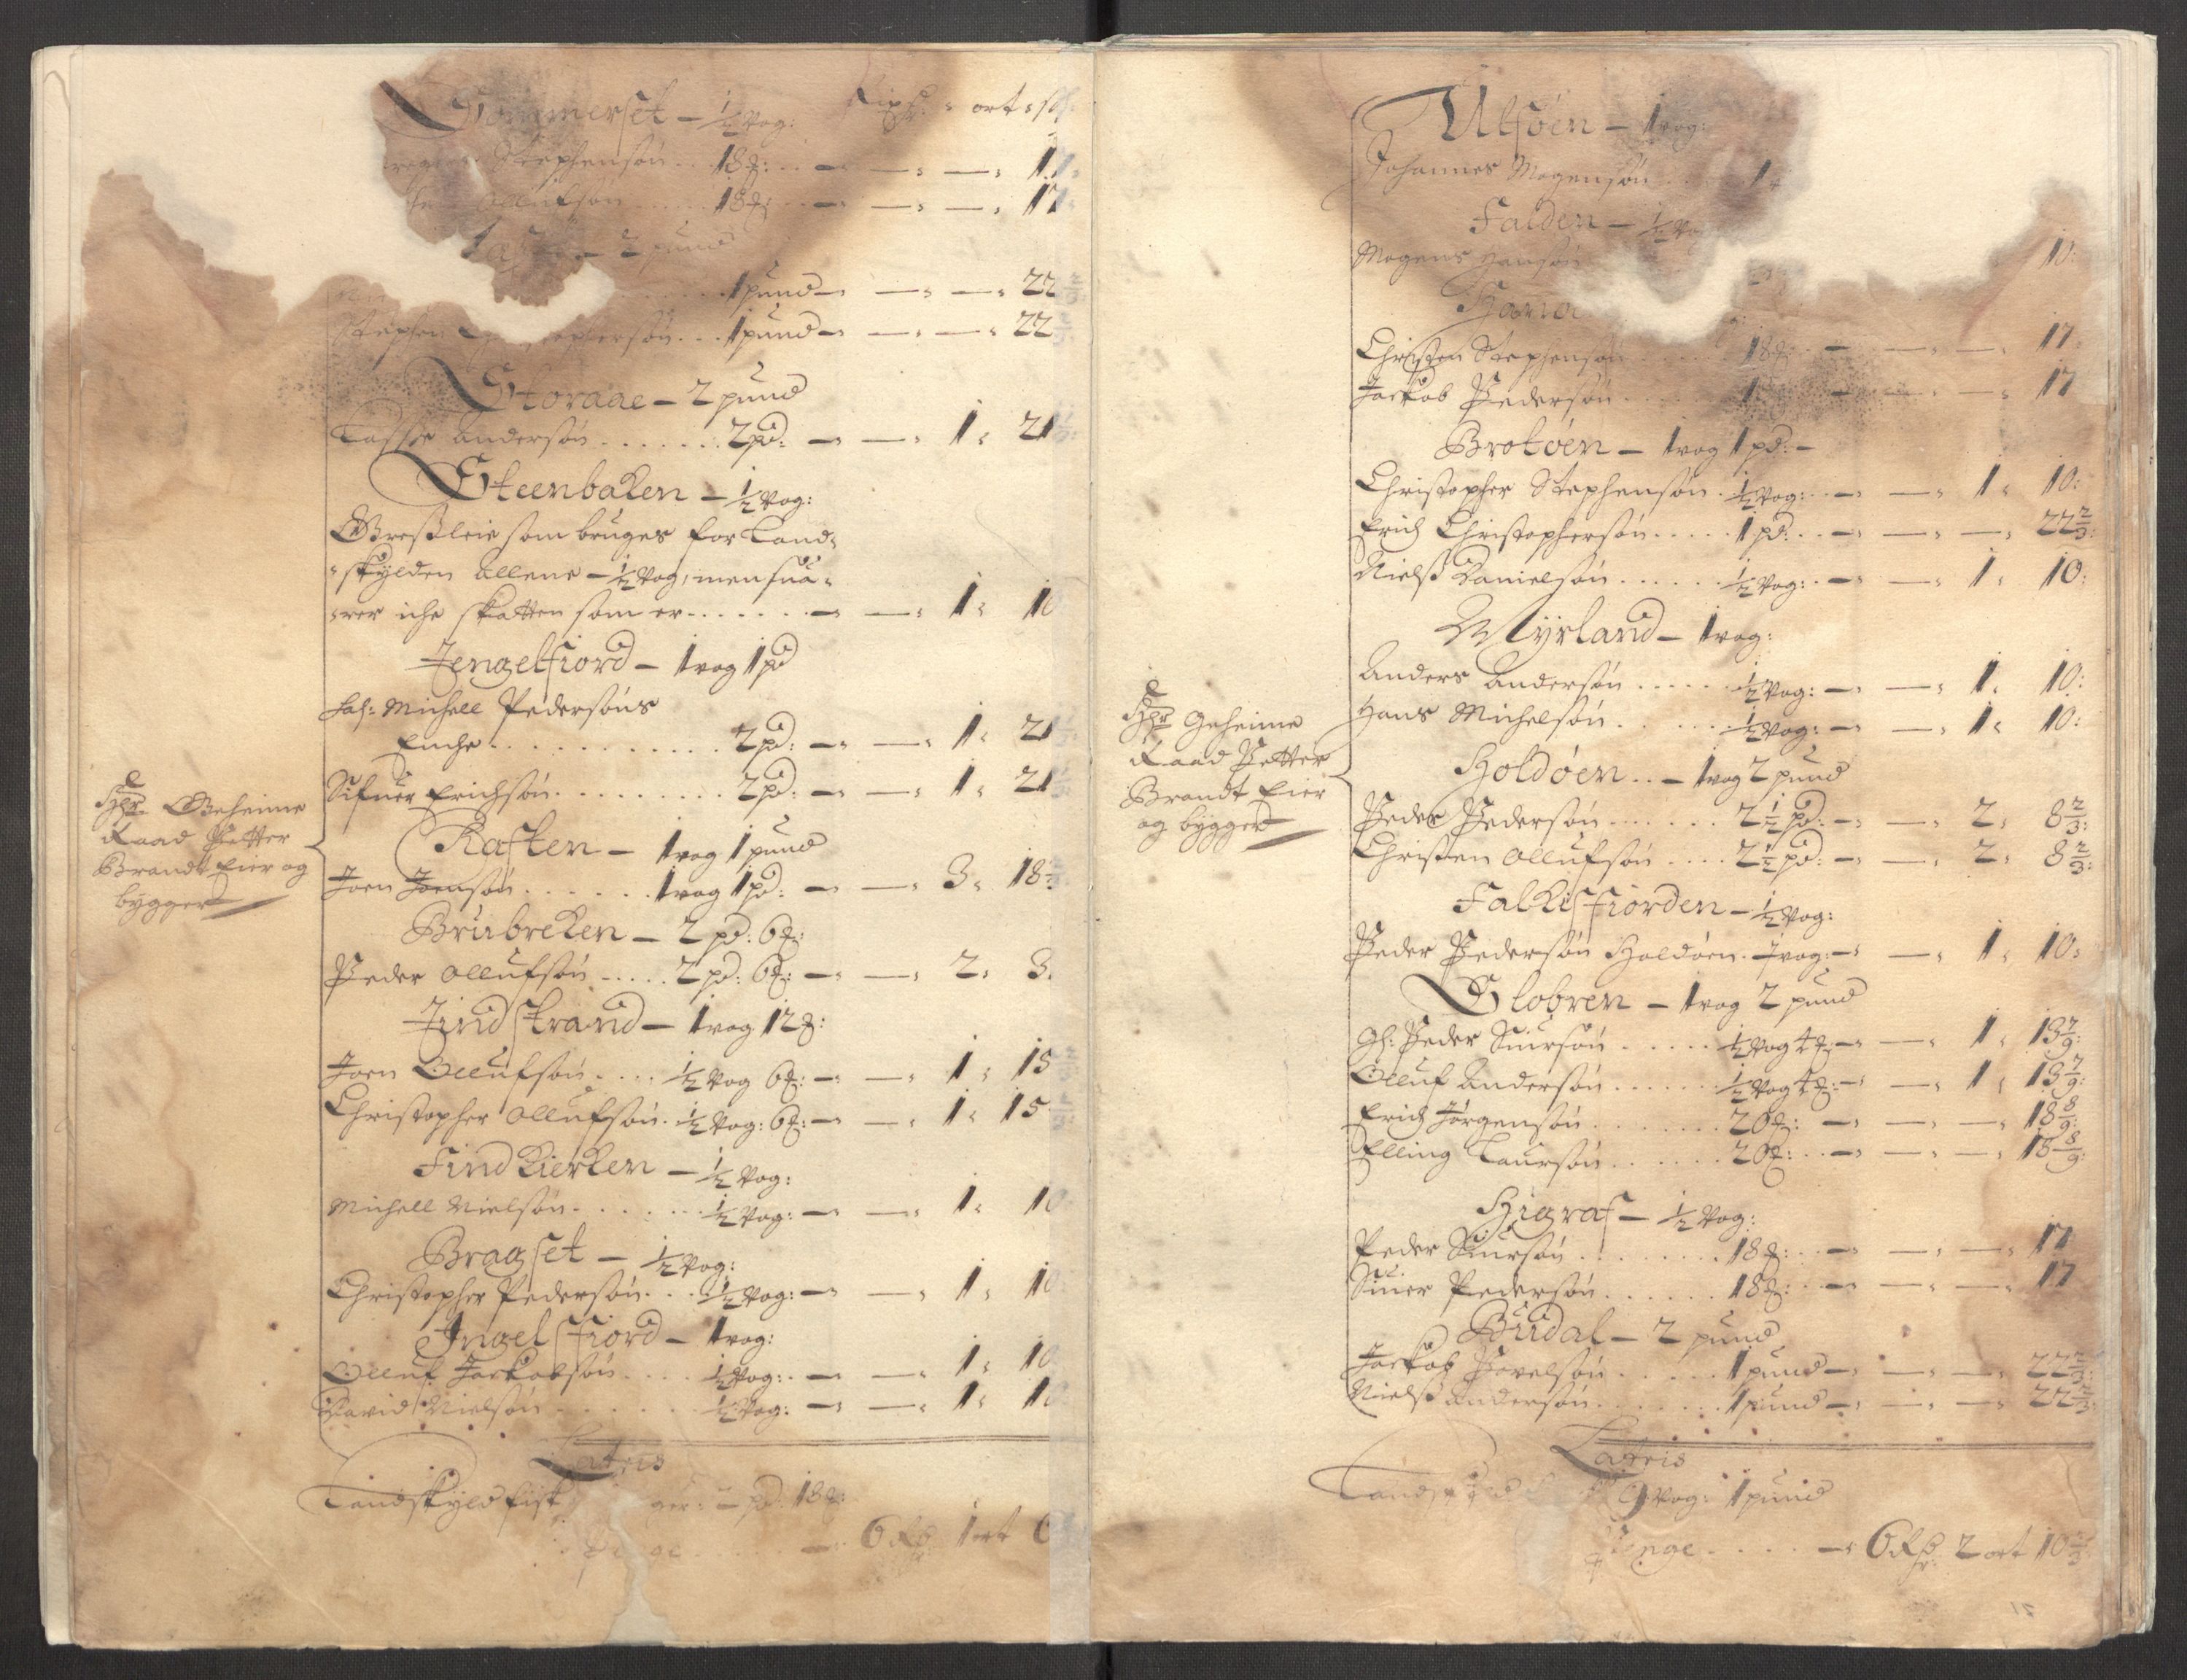 Sommerset – ½ Vog: Rixdr: ort: sk
Stephensøn . . 18 ℔: – – – 17
Ollufsøn . . . 18 ℔: – – – 17
– 2 pund
. . . 1 pund – – – 22 ⅔
Stephen . . 1 pund – – – 22
Storaae – 2 pund
Lasse Andersøn . . . . . . 2 pd: – – 1 " 21
Steenbaken – ½ Vog:
Gressleie som bruges for Land-
skylden allene – ½ Vog, men sua-
rer iche skatten som er . . . . . . – – 1 " 10
Jengelfiord – 1 vog 1 pd
Sal: Michell Pedersøns
Enche . . . . . . . . . . . 2 pd: – – 1 " 21
Sifuer Erichsøn . . . . . . . . 2 pd: – – 1 " 21
Hr Geheime
Raad Petter
Brandt Eier og
bygger
Raften – 1 vog 1 pund
Joen Joensøn . . . . . . 1 vog 1 pd: – – 3 " 18
Brubreken – 2 pd: 6 ℔:
Peder Ollufsøn . . . . 2 pd: 6 ℔: – – 2 " 3
Findstrand – 1 vog 12 ℔:
Joen Ollufsøn . . . . ½ Vog 6 ℔: – – 1 " 15
Christopher Ollufsøn . ½ Vog: 6 ℔: – – 1 " 15
Find Kierken – ½ Vog:
Michell Nielsøn . . . . . . ½ Vog: – – 1 " 10
Bragset – ½ Vog:
Christopher Pedersøn . . . ½ Vog: – – 1 " 10
Ingelsfiord – 1 vog:
Olluf Jackobsøn . . . . ½ Vog: – – 1 " 10
David Nielsøn . . . . . . ½ Vog: – – 1 " 10
Lateris
Landskyld fisk 2 pd: 18 ℔:
– 6 Rdr 1 ort 6
Ulfsøen – 1 vog:
Johannes Mogensøn . . . 1
Falden – ½ Vo
Mogens Hansøn 10:
Christen Stephensøn . . . 18 ℔: – – – 17
Jackob Pedersøn . . . . 1 – – – 17
Brotøen – 1 vog 1 pd: –
Christopher Stephensøn . ½ Vog: . – – 1 " 10:
Erich Christophersøn . . . . . 1 pd: . – – – 22 ⅔:
Nielss Danielsøn . . . . . . ½ Vog: . – – 1 " 10:
Myrland – 1 vog:
Anders Andersøn . . . . . ½ Vog: – – 1 " 10:
Hans Michelsøn . . . . . ½ Vog: – – 1 " 10:
Hr Geheime
Raad Petter
Brandt Eier
og bygger
Holdøen . . – 1 vog 2 pund
Peder Pedersøn . . . . . . 2 ½ pd: – – 2 " 8 ⅔:
Christen Ollufsøn . . . . 2 ½ pd: – – 2 " 8 ⅔:
Falkisfiorden – ½ Vog:
Peder Pedersøn Holdøen . ½ vog: – – 1 " 10:
Globren – 1 vog 2 pund
Gl: Peder Siursøn . . . . . ½ Vog 4 ℔: – – 1 " 13 7/9:
Olluf Andersøn . . . . . . ½ Vog 4 ℔: – – 1 " 13 7/9:
Erich Jørgensøn . . . . . . . 20 ℔: – – – 18 8/9:
Elling Laursøn . . . . . . 20 ℔: . . – – – 18 8/9:
Higraf – ½ Vog:
Peder Siursøn . . . . . . . . 18 ℔: . . – – – 17
Siuer Pedersøn . . . . . . 18 ℔: . . – – – 17
Budal – 2 pund
Jackob Povelsøn . . . . . 1 pund – – – 22 ⅔:
Nielss Andersøn . . . . . . 1 pund – – – 22 ⅔:
Lateris
9 Vog: 1 pund
Penge . . . . – 6 Rdr: 2 ort 10 ⅔